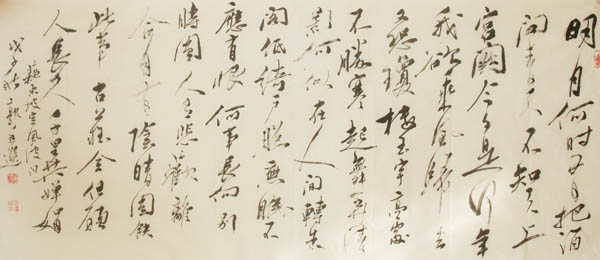 明月何時又有把酒
问青天不知天上
宫阙今夕是何年
我欲乘風歸去
又恐瓊楼玉宇高處
不勝寒起舞弄清
影何似在人间轉朱
阁低绮户照無眠不
應有恨何事長向别
時圆人有悲歡離
合月有陰晴圆缺
此事古難全但願
人長久千里共嬋娟
蘇東坡定風波词
戊子秋郭